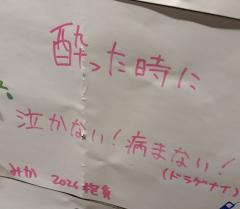 酔った時に
泣かない!病まない!
(ドラゲナイ)
みか 2026 抱負